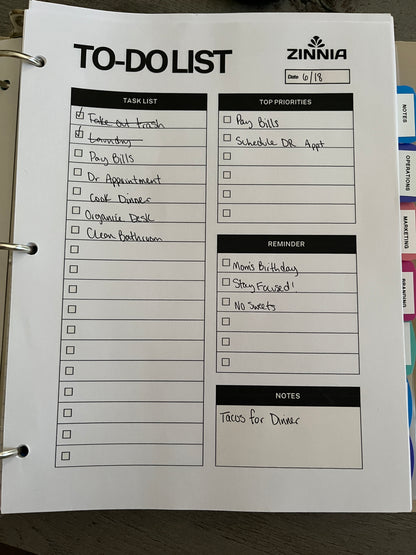 TO-DO LIST
ZINNIA
Date 6/18
TASK LIST
Take out trash
Laundry
Pay Bills
Dr Appointment
Cook Dinner
Organize Desk
Clean Bathroom
TOP PRIORITIES
Pay Bills
Schedule DR Appt
REMINDER
Mom's Birthday
Stay Focused!
No Sweets
NOTES
Tacos for Dinner
NOTES
OPERATIONS
MARKETING
BRANDING